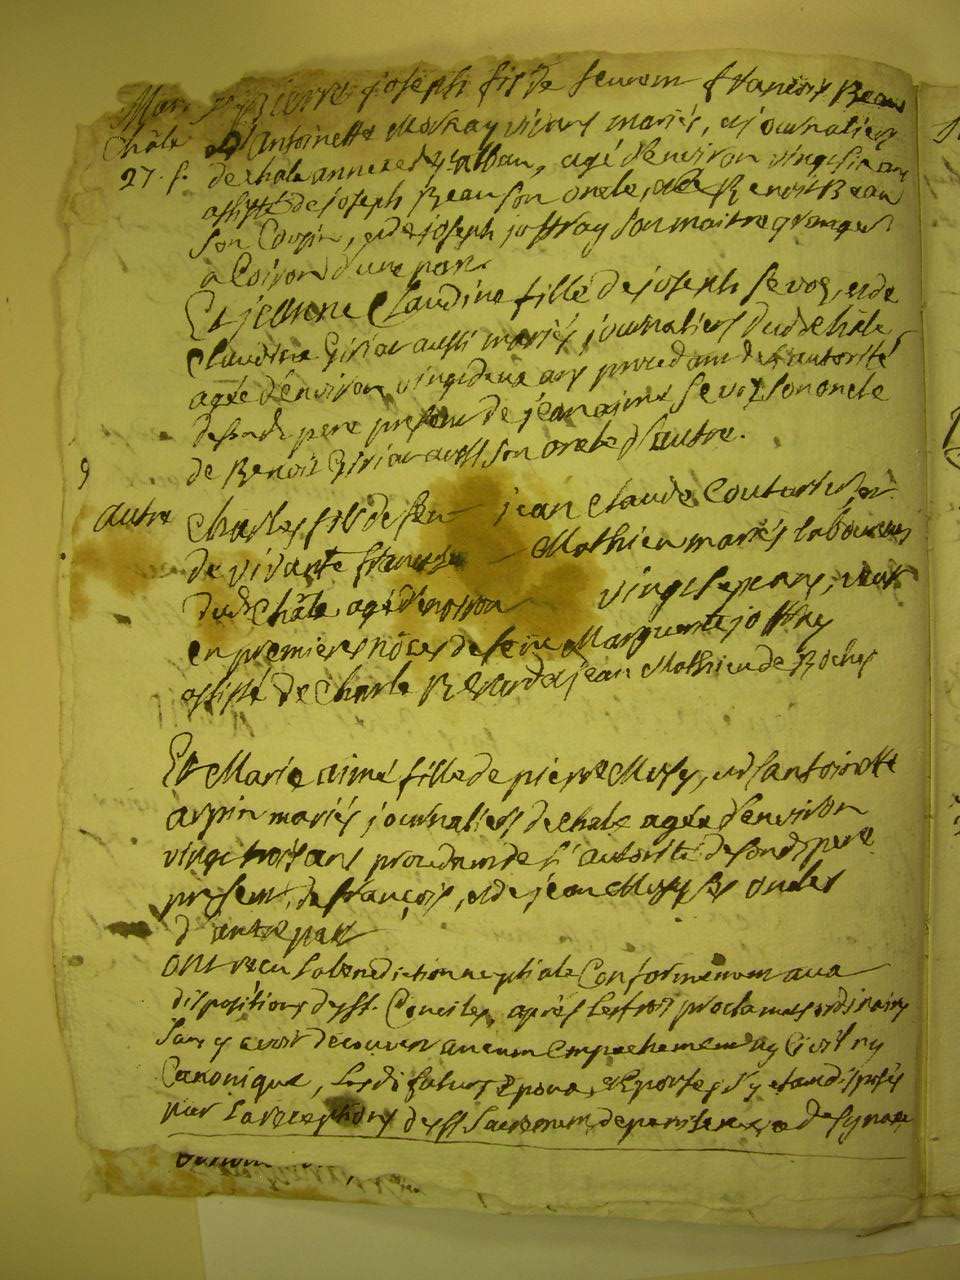 Pierre joseph fils de feu françois Beau
Châle d'Antoinette Mornay vivans mariés, journaliers
27. f. de chale annexe de St alban, agé d'environ vingt six ans
assisté de joseph Beau son oncle, de Benoit Beau
son Cousin, et de joseph joffray son maitre granger
a Coison d'une part.
Et jeanne Claudine fille de joseph Sevoz, et de
Claudine Giriar aussi mariés, journaliers dud. Châle
agée d'environ vingt deux ans procedant de l'autorité
de sond. pere present de jean aimé Sevoz son oncle
de Benoit Giriar aussi son oncle d'autre.
autre Charles fils de feu jean Claude
de vivante françoise Mathieu mariés laboureurs
dud. Châle agé d'environ vingt sept ans, veuf
en premieres nôces de feüe Marguerite joffray
assisté de Charle et de jean Mathieu de Roches
Et Marie aimé fille de pierre Mussy, et d'antoinette
arpin mariés journaliers de chale agée d'environ
vingt trois ans procedant de l'autorité de sond. pere
present, de françois, et de jean Mussy ses oncles
d'autre part
ont recu la benediction nuptiale Conformement aux
dispositions des St. Conciles, après les trois proclamats ordinaires
sans y avoir decouvert aucun Empechement ny Civil ny
Canonique, lesd. futurs Epoux, et Epouses s'y etant disposés
par la reception des Sts Sacremens de penitence, et de